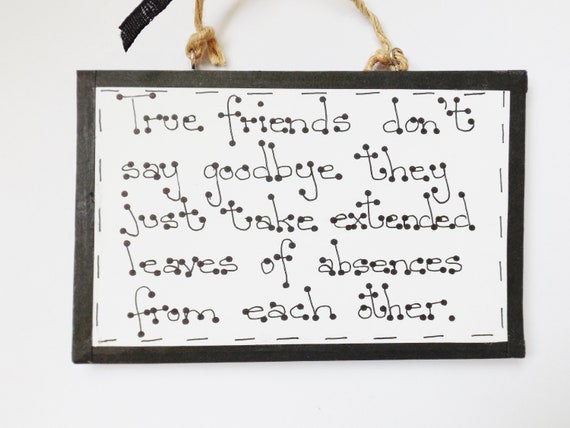 True friends don't
say goodbye they
just take extended
leaves of absences
from each other.